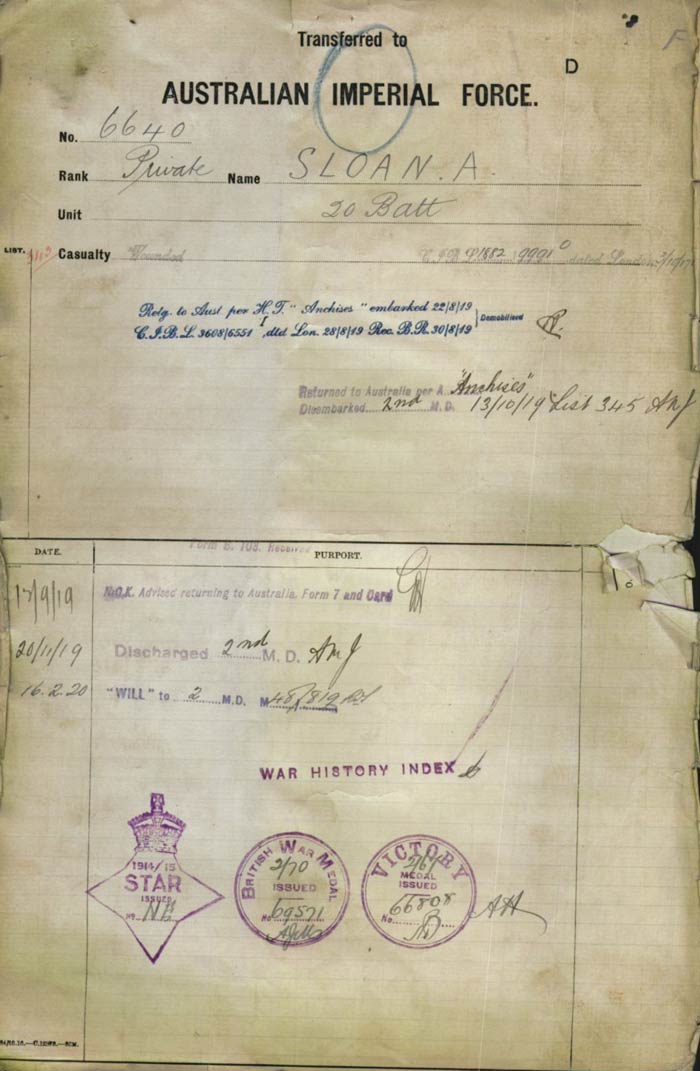 Transferred to
D
F
AUSTRALIAN IMPERIAL FORCE.
No. 6640
Rank Private Name SLOAN. A.
Unit 20 Batt
LIST. Casualty Wounded C.I.B.L 1882 dated London
Retg. to Aust. per H.T. "Anchises" embarked 22/8/19
C.I.B.L. 3608/6551 dtd Lon. 28/8/19 Rec. B.R. 30/8/19 } Demobilised
Returned to Australia per A. "Anchises"
Disembarked 2nd M.D. 13/10/19 List 345 AMJ
DATE. PURPORT.
Form B. 103. Received
17/9/19 N.O.K. Advised returning to Australia. Form 7 and Card
20/11/19 Discharged 2nd M.D. AMJ
16.2.20 "WILL" to 2 M.D. M
WAR HISTORY INDEX
1914/15
STAR
ISSUED
No. NE
BRITISH WAR MEDAL
2/70
ISSUED
No 69571
VICTORY
2/67
MEDAL
ISSUED
No. 66808
AH